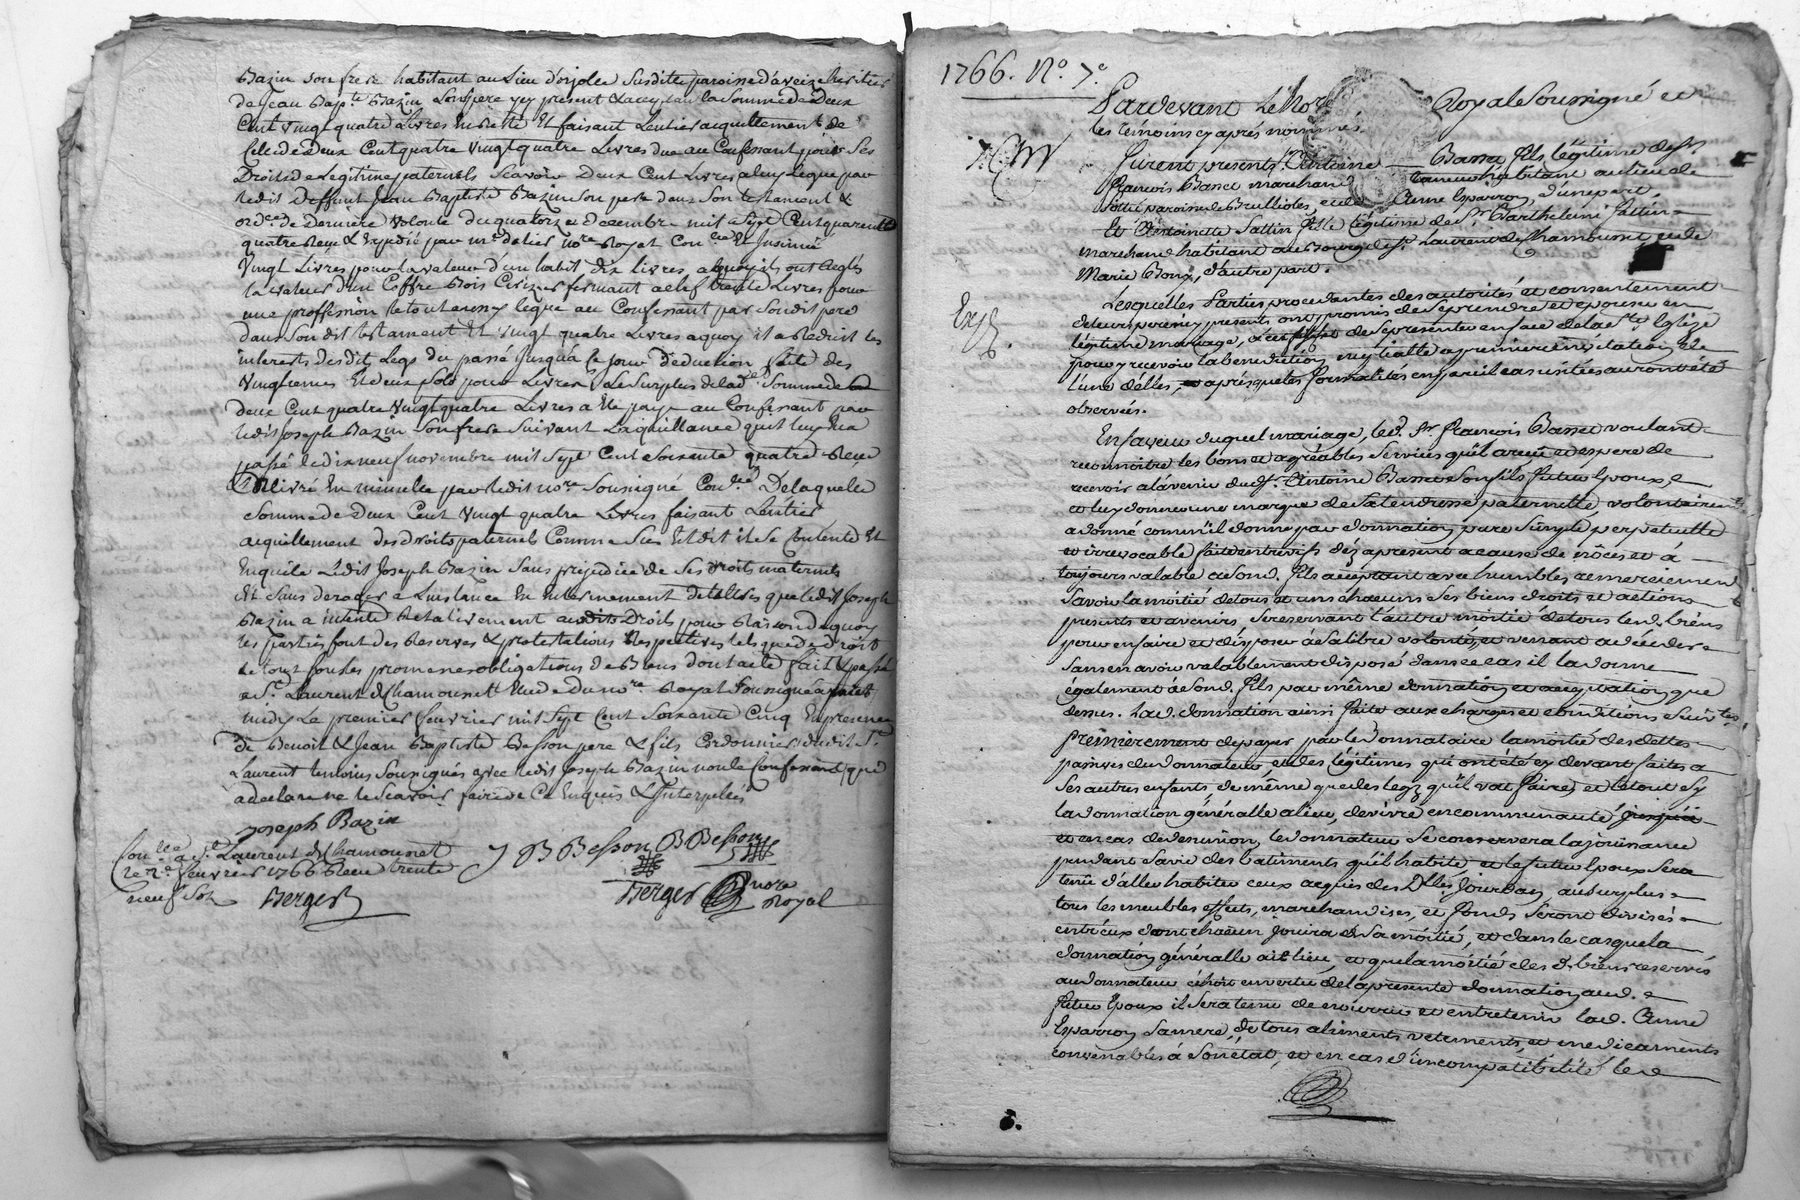 Bazin son frere habitant au Lieu d'orjolee susditte paroisse d'aveize heritier
de Jean Bap.te Bazin Son pere yey present & aceptant la Somme de Deux
Cent vingt quatre Livres En reste Et faisant Lentier acquittement de
Celle de Deux Cent quatre vingt quatre Livres due au Confessant pour Ses
Droits de Legitime paternels Scavoir Deux Cent Livres a luy legué par
ledit Deffunt Jean Baptiste Bazin Son pere dans Son testament &
ord.ce de Derniere volonté du quatorze decembre mil Sept Cent quarente
quatre Receu & Expedié par m.e notre Royal Con.lée Et Insinué
Vingt Livres pour la valeur d'un habit dix Livres, a quoy ils ont Reglés
la valeur d'un Coffre Bois Cerizier fermant a clef trente Livres pour
une proffession le tout aussy legué au Confessant par Son dit pere
dans Son dit testament Et vingt quatre Livres a quoy il a Reduit les
interets desdits Legs du passé Jusqua ce Jour Deduction faite des
vingtiemes Et deux Sols pour Livres, Le Surplus de lad.e Somme de
deux Cent quatre vingt quatre Livres a Eté payé au Confessant par
ledit Joseph Bazin Son frere Suivant La quittance qu'il luy en a
passé le dix neuf novembre mil Sept Cent Soixante quatre Receu
Et livré En minutte par ledit no.re Sousigné Con.lée De laquelle
Somme de Deux Cent vingt quatre Livres faisant L'entier
acquittement des Droits paternels Comme Sus Est dit il Se Contente Et
En quite Ledit Joseph Bazin Sans prejudice de Ses Droits maternels
Et Sans deroger a L'instance En Enterinement de lettres que ledit Joseph
Bazin a intenté Relativement audits Droits pour Raison de quoy
les parties font des Reserves & protestations Respectives tels que de droit
le tout Sous les promesses obligations de Biens dont acte fait & passé
a S.t Laurent de Chamousset Etude du no.re Royal Sousigné apres
midy Le premier fevrier mil Sept Cent Soixante Cinq En presence
de Benoit & Jean Baptiste Besson pere & fils Cordonniers dudit S.t
Laurent temoins Sousignés avec ledit Joseph Bazin non le Confessant qui
a declaré ne le Scavoir faire de Ce Enquis & Interpellés
Joseph Bazin
J B Besson B Besson
Con.lée a S.t Laurent de Chamousset
le 2.e fevrier 1766 Receu trente
neuf Sols Berger
Berger nore
Royal
1766. No. 7.e
Pardevant Le Nore Royal Soussigné et
les témoins cy aprés nommés.
Furent presents Sr. Antoine Basset fils légitime de Sr.
François Basset marchand habitant au lieu de
paroisse de Brullioles, et de Anne Esparron, d'une part,
Et Antoinette Sattin fille légitime de Sr. Barthelemi Sattin
marchand habitant au Bourg de St. Laurent de Chamousset et de
Marie Bony, d'autre part.
Exp.
Lesquelles Parties procedantes des autorités et consentement
de leurs peres cy presents ont promis de Se prendre et epouser en
légitime mariage, de Se presenter en face de la Ste. Eglise
pour y recevoir la benediction nuptialle a premiere requisitation de
l'une d'elles, aprés que les formalités en pareil cas usitées auront été
observées.
En faveur duquel mariage, led. Sr. françois Basset voulant
reconnoitre les bons et agréables Services qu'il a reçu et espere de
recevoir a l'avenir dud. Sr. Antoine Basset Son fils futur Epoux, &
et luy donner une marque de Sa tendresse paternelle volontairement
a donné comm'il donne par donnation pure Simple perpetuelle
et irrevocable faite entre vifs déz apresent a cause de nôces et a
toujours valable a Sond. fils acceptant avec humbles remerciement
Savoir la moitié de tous et uns chacuns Ses biens droits et actions
presents et avenirs, Se reservant l'autre moitié de tous lesd. biens
pour en faire et disposer à Sa libre volonté, et venant a déceder
Sans en avoir valablement disposé dans ce cas il la donne
également à Sond. fils par même donnation et acceptation que
dessus. Lad. donnation ainsi faite aux charges et conditions Suivtes.
premierement de payer par le Donnataire la moitié des dettes
passives du donnateur, et des légitimes qui ont été cy devant faites a
Ses autres enfants de même que des legz qu'il va faire, et le tout Sy
la donnation généralle a lieu, de vivre en communauté
et en cas de desunion, le donnateur Se conservera la jouissance
pendant Sa vie des batiments qu'il habite, et le futur Epoux Sera
tenu d'aller habiter ceux acquis des Dlles. Jourdan, au Surplus
tous les meubles effets, marchandises, et fonds Seront divisés
entr'eux dont chacun jouira de Sa moitié, et dans le cas que la
donnation généralle ait lieu, et que la moitié des d. biens reservés
au donnateur échoit en vertu de la presente donnation aud.
futur Epoux il Sera tenu de nourrir et entretenir lad. Anne
Esparron Sa mere de tous aliments, vetements, et medicaments
convenables à Son état, et en cas d'incompatibilité led